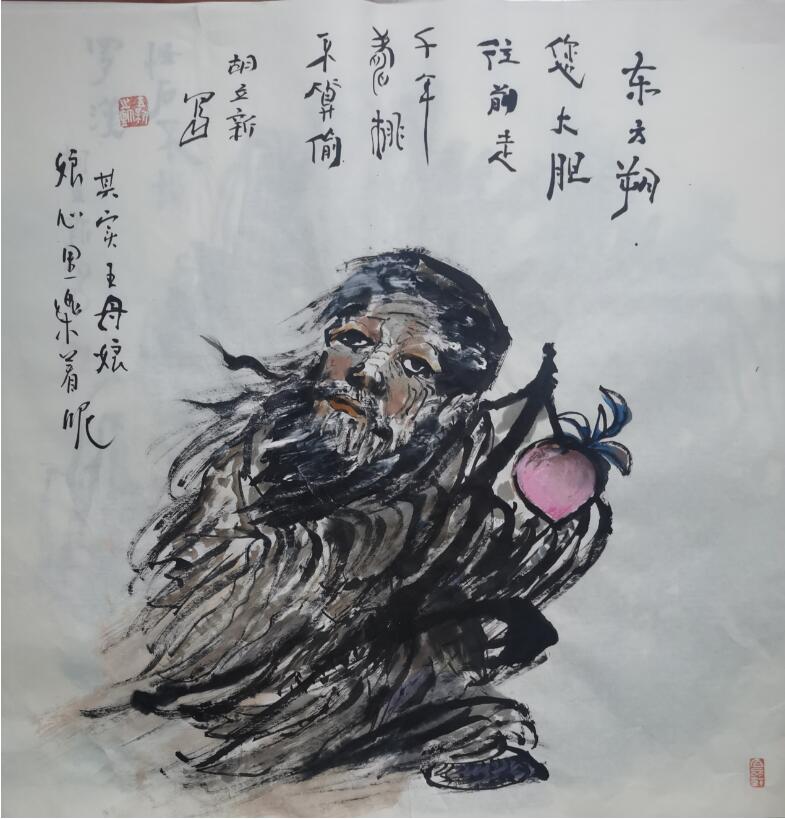 东方朔
您大胆
往前走
千年
寿桃
不算偷
胡立新
写
其实王母娘
娘心里樂着呢